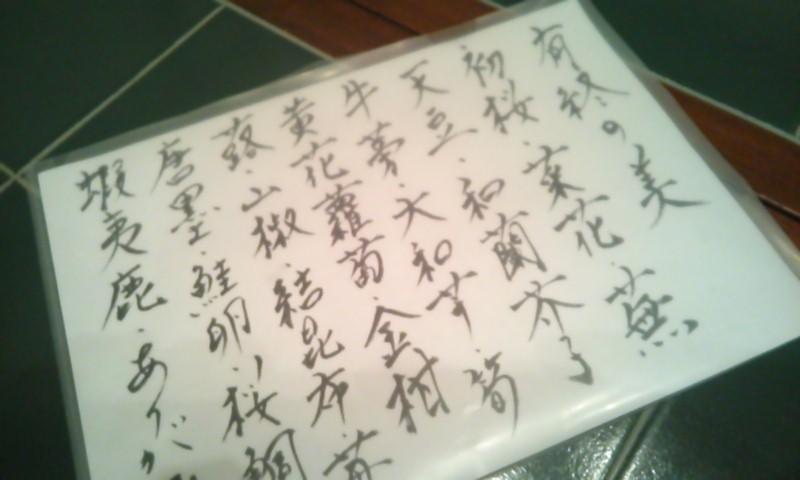 有終の美
初桜・菜花・蕪
天豆・和蘭芥子
牛蒡・大和芋・筍
黄花蘿蔔・金柑
蕗・山椒・結昆布
唐墨・鮭明り桜鯛
蝦夷鹿・ありが